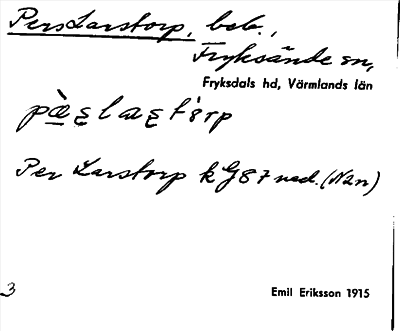 Pers Larstorp, beb.,
Fryksände sn,
Fryksdals hd, Värmlands län
Per Larstorp k G87 nad. (N2n)
3
Emil Eriksson 1915